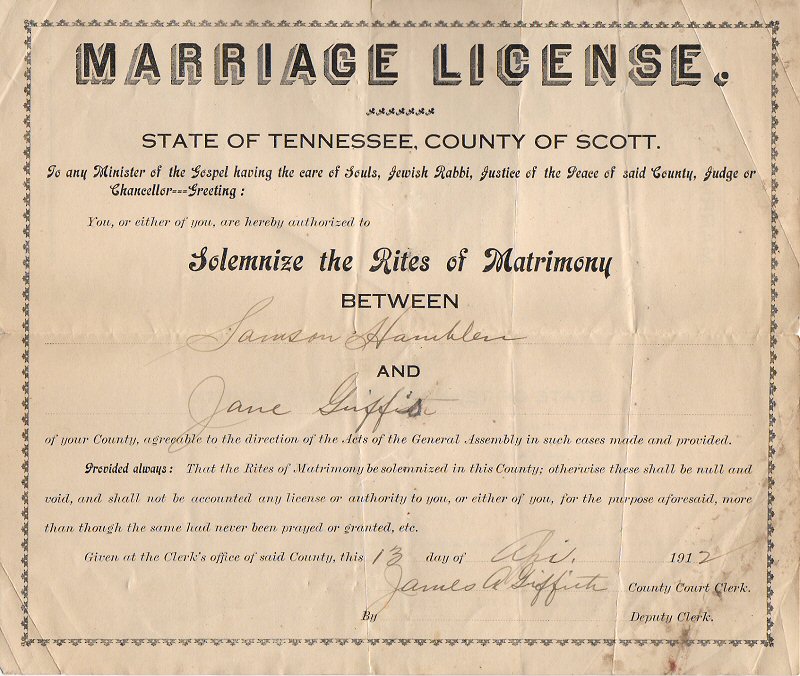 MARRIAGE LICENSE.
STATE OF TENNESSEE, COUNTY OF SCOTT.
To any Minister of the Gospel having the care of Souls, Jewish Rabbi, Justice of the Peace of said County, Judge or
Chancellor===Greeting:
You, or either of you, are hereby authorized to
Solemnize the Rites of Matrimony
BETWEEN
Samson Hamblen
AND
Jane Griffith
of your County, agreeable to the direction of the Acts of the General Assembly in such cases made and provided.
Provided always: That the Rites of Matrimony be solemnized in this County; otherwise these shall be null and
void, and shall not be accounted any license or authority to you, or either of you, for the purpose aforesaid, more
than though the same had never been prayed or granted, etc.
Given at the Clerk's office of said County, this 13 day of 1912
James A Griffith County Court Clerk.
By Deputy Clerk.